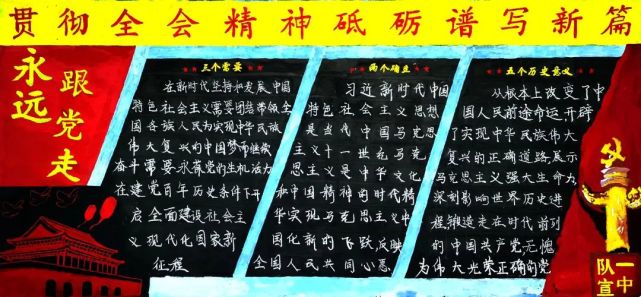 贯彻全会精神砥砺谱写新篇
永远
跟党走
三个需要
在新时代坚持和发展中国
特色社会主义需要团结带领全
国各族人民为实现中华民族
伟大复兴的中国梦而继续
奋斗需要永葆党的生机活力
在建党百年历史条件下开
启全面建设社会主
义现代化国家新
征程
两个确立
习近新时代中国
特色社会主义思想
是当代中国马克思
主义十一世纪马克
思主义是中华文化
和中国精神的时代精
华实现马克思主义中
国化新的飞跃反映
全国人民共同心愿
五个历史意义
从根本上改变了中
国人民前途命运开辟
了实现中华民族伟大
复兴的正确道路展示
马克思主义强大生命力
深刻影响世界历史进
程锻造走在时代前列
的中国共产党无愧
为伟大光荣正确的党
一中
队宣